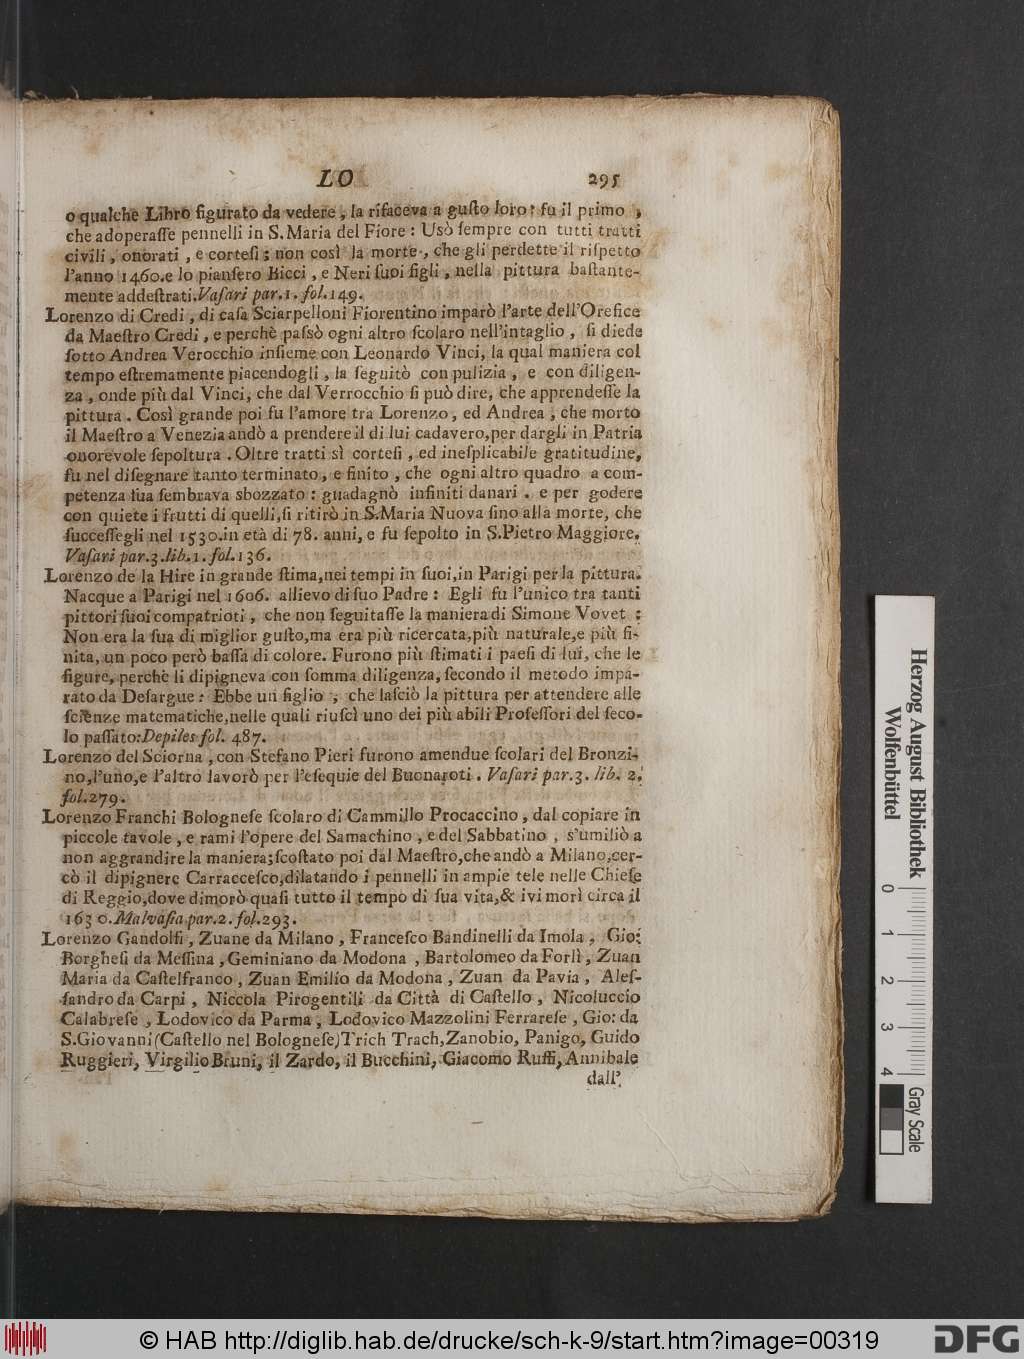 LO 295
o qualche Libro figurato da vedere, la rifaceva a guſto loro: fu il primo,
che adoperaſſe pennelli in S. Maria del Fiore: Usò ſempre con tutti tratti
civili, onorati, e corteſi; non così la morte, che gli perdette il riſpetto
l'anno 1460. e lo pianſero Bicci, e Neri ſuoi figli, nella pittura baſtante-
mente addeſtrati. Vaſari par. 1. fol. 149.
Lorenzo di Credi, di caſa Sciarpelloni Fiorentino imparò l'arte dell'Orefice
da Maeſtro Credi, e perchè paſsò ogni altro ſcolaro nell'intaglio, ſi diede
ſotto Andrea Verocchio inſieme con Leonardo Vinci, la qual maniera col
tempo eſtremamente piacendogli, la ſeguitò con pulizia, e con diligen-
za, onde più dal Vinci, che dal Verrocchio ſi può dire, che apprendeſſe la
pittura. Così grande poi fu l'amore tra Lorenzo, ed Andrea, che morto
il Maeſtro a Venezia andò a prendere il di lui cadavero, per dargli in Patria
onorevole ſepoltura. Oltre tratti sì corteſi, ed ineſplicabile gratitudine,
fu nel diſegnare tanto terminato, e finito, che ogni altro quadro a com-
petenza ſua ſembrava sbozzato: guadagnò infiniti danari. e per godere
con quiete i frutti di quelli, ſi ritirò in S. Maria Nuova ſino alla morte, che
ſucceſſegli nel 1530. in età di 78. anni, e fu ſepolto in S. Pietro Maggiore.
Vaſari par. 3. lib. 1. fol. 136.
Lorenzo de la Hire in grande ſtima, nei tempi in ſuoi, in Parigi per la pittura.
Nacque a Parigi nel 1606. allievo di ſuo Padre: Egli fu l'unico tra tanti
pittori ſuoi compatrioti, che non ſeguitaſſe la maniera di Simone Vovet:
Non era la ſua di miglior guſto, ma era più ricercata, più naturale, e più fi-
nita, un poco però baſſa di colore. Furono più ſtimati i paeſi di lui, che le
figure, perchè li dipigneva con ſomma diligenza, ſecondo il metodo impa-
rato da Deſargue: Ebbe un figlio, che laſciò la pittura per attendere alle
ſcienze matematiche, nelle quali riuſcì uno dei più abili Profeſſori del ſeco-
lo paſſato: Depiles fol. 487.
Lorenzo del Sciorna, con Stefano Pieri furono amendue ſcolari del Bronzi-
no, l'uno, e l'altro lavorò per l'eſequie del Buonaroti. Vaſari par. 3. lib. 2.
fol. 279.
Lorenzo Franchi Bologneſe ſcolaro di Cammillo Procaccino, dal copiare in
piccole tavole, e rami l'opere del Samachino, e del Sabbatino, s'umiliò a
non aggrandire la maniera; ſcoſtato poi dal Maeſtro, che andò a Milano, cer-
cò il dipignere Carracceſco, dilatando i pennelli in ampie tele nelle Chieſe
di Reggio, dove dimorò quaſi tutto il tempo di ſua vita, & ivi morì circa il
1630. Malvaſia par. 2. fol. 293.
Lorenzo Gandolfi, Zuane da Milano, Franceſco Bandinelli da Imola, Gio:
Borgheſi da Meſſina, Geminiano da Modona, Bartolomeo da Forlì, Zuan
Maria da Caſtelfranco, Zuan Emilio da Modona, Zuan da Pavia, Aleſ-
ſandro da Carpi, Niccola Pirogentili da Città di Caſtello, Nicoluccio
Calabreſe, Lodovico da Parma, Lodovico Mazzolini Ferrareſe, Gio: da
S. Giovanni (Caſtello nel Bologneſe) Trich Trach, Zanobio, Panigo, Guido
Ruggieri, Virgilio Bruni, il Zardo, il Bucchini, Giacomo Ruffi, Annibale
dall'
Herzog August Bibliothek
Wolfenbüttel
0 1 2 3 4
Gray Scale
© HAB http://diglib.hab.de/drucke/sch-k-9/start.htm?image=00319
DFG